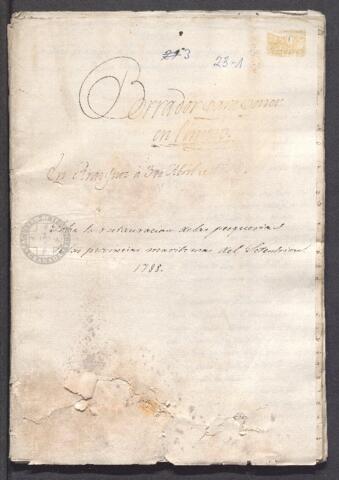 213
23-1
Borrador para poner
en limpio
En Aranjuez a 30 Abril
Sobre la restauracion de las pesquerias
de las provincias maritimas del Setentrion
1788.